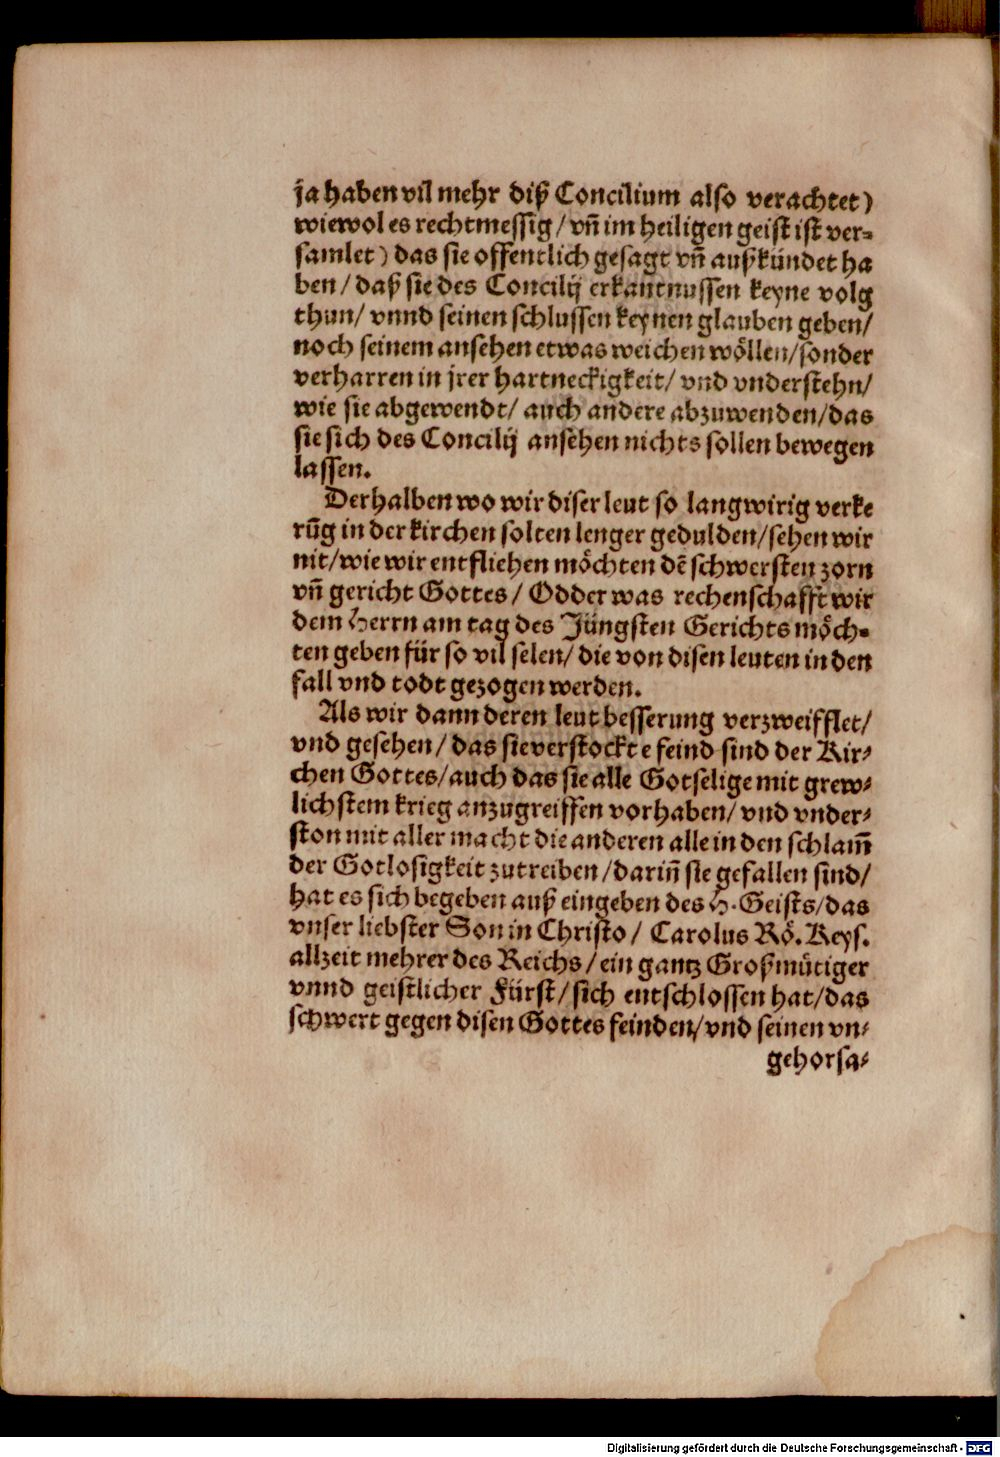 ja haben vil mehr diß Concilium also verachtet)
wiewol es rechtmessig / vn̄ im heiligen geist ist ver⸗
samlet) das sie offentlich gesagt vn̄ außkündet ha
ben / daß sie des Concilij erkantnussen keyne volg
thun / vnnd seinen schlussen keynen glauben geben /
noch seinem ansehen etwas weichen wöllen / sonder
verharren in jrer hartneckigkeit / vnd vnderstehn /
wie sie abgewendt / auch andere abzuwenden / das
sie sich des Concilij ansehen nichts sollen bewegen
lassen.
Derhalben wo wir diser leut so langwirig verke
rūg in der kirchen solten lenger gedulden / sehen wir
nit / wie wir entfliehen möchten dē schwersten zorn
vn̄ gericht Gottes / Odder was rechenschafft wir
dem Herrn am tag des Jüngsten Gerichts möch⸗
ten geben für so vil selen / die von disen leuten in den
fall vnd todt gezogen werden.
Als wir dann deren leut besserung verzweifflet /
vnd gesehen / das sie verstockte feind sind der Kir⸗
chen Gottes / auch das sie alle Gotselige mit grew⸗
lichstem krieg anzugreiffen vorhaben / vnd vnder⸗
ston mit aller macht die anderen alle in den schlam̄
der Gotlosigkeit zutreiben / darin̄ sie gefallen sind /
hat es sich begeben auß eingeben des H. Geists / das
vnser liebster Son in Christo / Carolus Rö. Keys.
allzeit mehrer des Reichs / ein gantz Großmütiger
vnnd geistlicher Fürst / sich entschlossen hat / das
schwert gegen disen Gottes feinden / vnd seinen vn⸗
gehorsa⸗
Digitalisierung gefördert durch die Deutsche Forschungsgemeinschaft - DFG